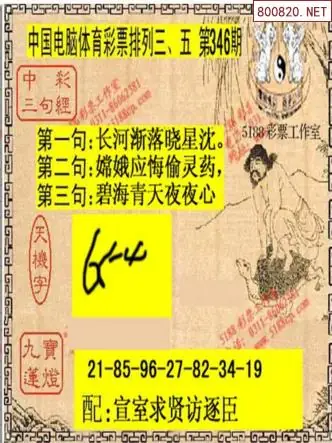 800820.NET
中国电脑体育彩票排列三、五 第346期
中彩
三句經
5188彩票工作室
第一句:长河渐落晓星沈。
第二句:嫦娥应悔偷灵药,
第三句:碧海青天夜夜心
天機字
6-4
九寶
蓮燈
21-85-96-27-82-34-19
配:宣室求贤访逐臣